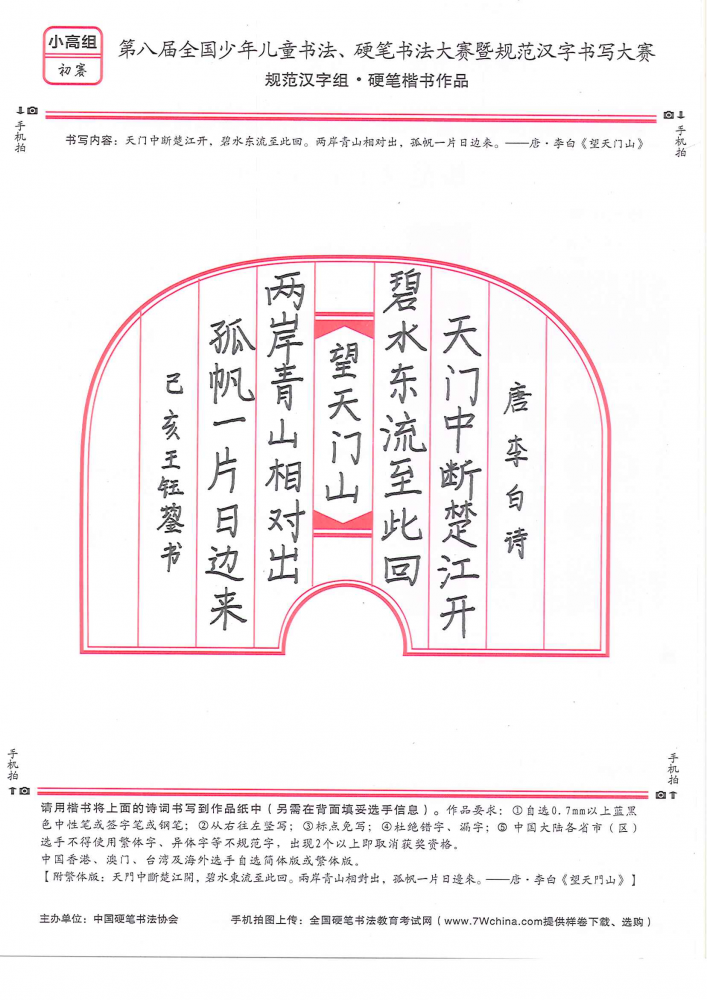 小高组
初赛
第八届全国少年儿童书法、硬笔书法大赛暨规范汉字书写大赛
规范汉字组·硬笔楷书作品
手机拍
手机拍
书写内容：天门中断楚江开，碧水东流至此回。两岸青山相对出，孤帆一片日边来。——唐·李白《望天门山》
唐李白诗
天门中断楚江开
碧水东流至此回
望天门山
两岸青山相对出
孤帆一片日边来
己亥王钰鋆书
手机拍
手机拍
请用楷书将上面的诗词书写到作品纸中（另需在背面填妥选手信息）。作品要求：①自选0.7mm以上蓝黑
色中性笔或签字笔或钢笔；②从右往左竖写；③标点免写；④杜绝错字、漏字；⑤中国大陆各省市（区）
选手不得使用繁体字、异体字等不规范字，出现2个以上即取消获奖资格。
中国香港、澳门、台湾及海外选手自选简体版或繁体版。
【附繁体版：天門中断楚江開，碧水東流至此回。兩岸青山相對出，孤帆一片日邊來。——唐·李白《望天門山》】
主办单位：中国硬笔书法协会
手机拍图上传：全国硬笔书法教育考试网（www.7Wchina.com提供样卷下载、选购）